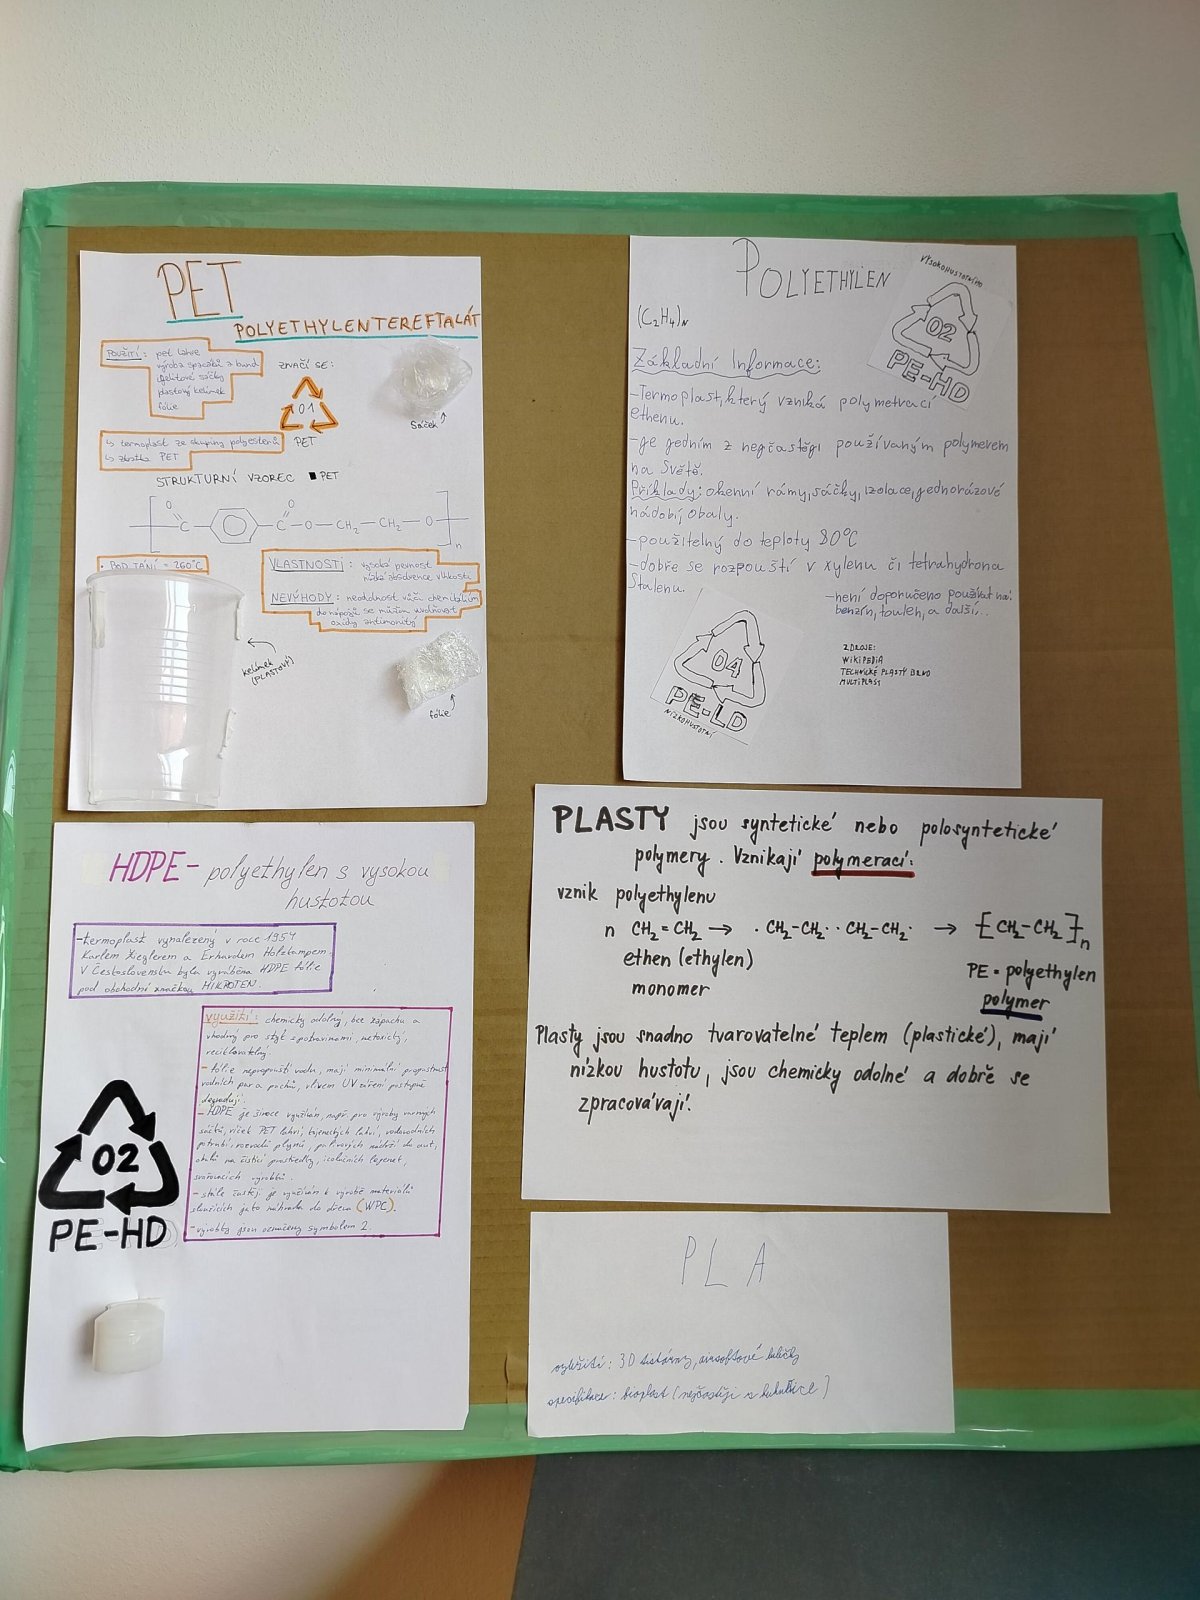 PET
POLYETHYLENTEREFTALÁT
POUŽITÍ: pet lahve
výroba spacáků a bund
igelitové sáčky
plastový kelímek
fólie
ZNAČÍ SE:
01
PET
sáček
↳ termoplast ze skupiny polyesterů
↳ zkratka PET
STRUKTURNÍ VZOREC PET
O O
C C O CH2 CH2 O
n
• BOD TÁNÍ = 260°C
VLASTNOSTI: vysoká pevnost
nízká absorbce vlhkosti
NEVÝHODY: neodolnost vůči chemikáliím
do nápojů se můžou uvolňovat
oxidy antimonitý
kelímek
(PLASTOVÝ)
fólie
POLYETHYLEN
VYSOKOHUSTOTNÍHO
02
PE-HD
(C2H4)N
Základní Informace:
-Termoplast, který vzniká polymetrací
ethenu.
-je jedním z nejčastěji používaným polymerem
na světě.
Příklady: okenní rámy, sáčky, izolace, jednorázové
nádobí, obaly.
-použitelný do teploty 80°C
-dobře se rozpouští v xylenu či tetrahydrona
stalenu.
-není doporučeno používat na:
benzín, touleh, a další...
04
PE-LD
NÍZKOHUSTOTNÍ
ZDROJE:
WIKIPEDIA
TECHNICKÉ PLASTY BRNO
MULTIPLAST
HDPE- polyethylen s vysokou
hustotou
-termoplast vynalezený v roce 1954
Karlem Zieglerem a Erhardem Holzkampem.
V Československu byla vyráběna HDPE fólie
pod obchodní značkou MIKROTEN.
VYUŽITÍ: chemicky odolný, bez zápachu a
vhodný pro styk s potravinami, netoxický,
recyklovatelný.
- fólie nepropouští vodu, mají minimální propustnost
vodních par a pachů, vlivem UV záření postupně
degradují.
- HDPE je široce využíván, např. pro výroby varných
sáčků, víček PET lahví, kojeneckých lahví, vodovodních
potrubí, rozvodů plynu, palivových nádrží do aut,
obalů na čistící prostředky, izolačních lepenek,
svařovacích výrobků.
- stále častěji je využíván k výrobě materiálů
sloužících jako náhrada do dřeva (WPC).
- výrobky jsou označeny symbolem 2.
02
PE-HD
PLASTY jsou syntetické nebo polosyntetické
polymery. Vznikají polymerací:
vznik polyethylenu
n CH2=CH2 → ·CH2-CH2· ·CH2-CH2· → [CH2-CH2]n
ethen (ethylen)
monomer
PE = polyethylen
polymer
Plasty jsou snadno tvarovatelné teplem (plastické), mají
nízkou hustotu, jsou chemicky odolné a dobře se
zpracovávají.
PLA
využití: 3D tiskárny, airsoftové kuličky
specifikace: bioplast (nejčastěji z kukuřice)